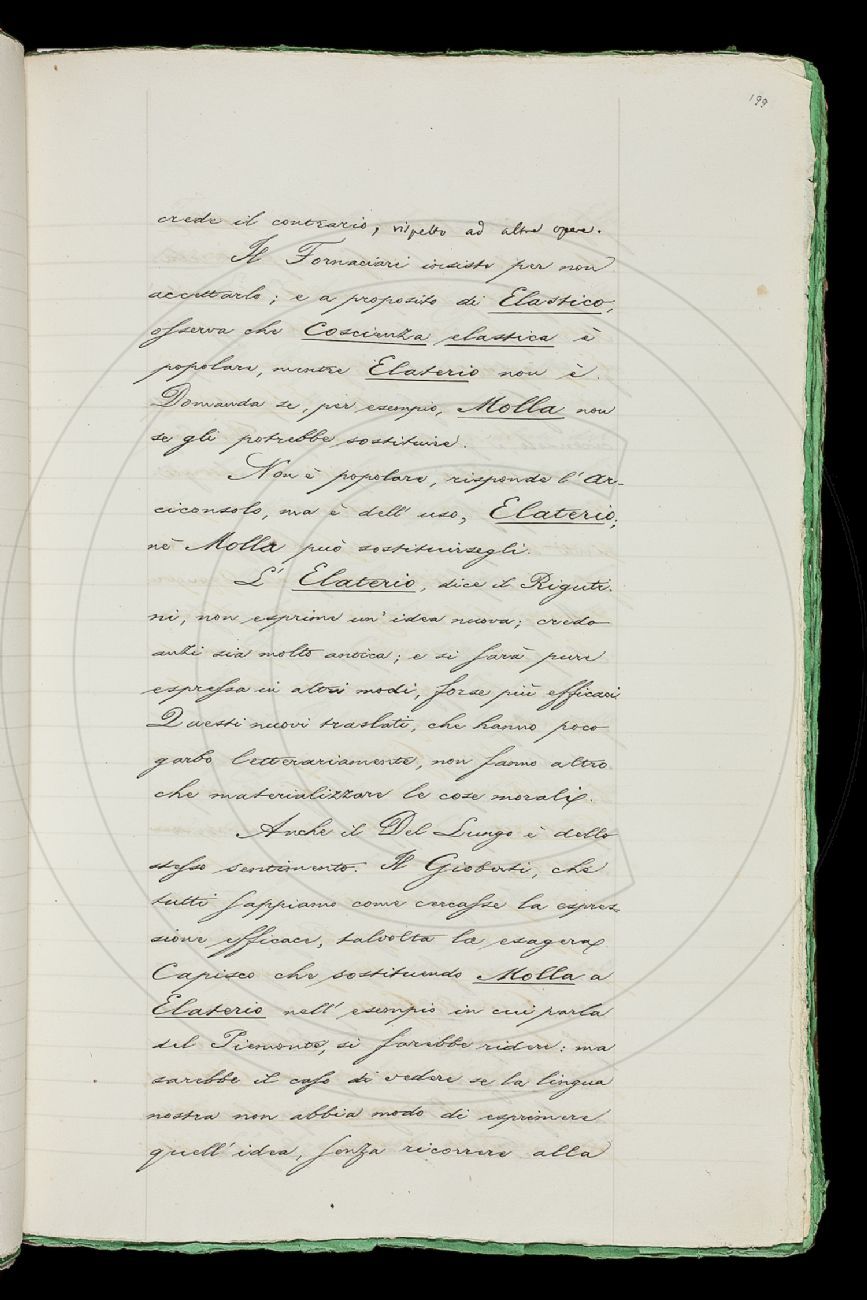 199
crede il contrario, rispetto ad altre opere.
Il Fornaciari insiste per non
accettarlo; e a proposito di Elastico,
osserva che Coscienza elastica è
popolare, mentre Elaterio non è.
Domanda se, per esempio, Molla non
se gli potrebbe sostituire.
Non è popolare, risponde l'Ar-
ciconsolo, ma è dell'uso, Elaterio;
nè Molla può sostituirsegli.
L'Elaterio, dice il Riguti-
ni, non esprime un'idea nuova; credo
anzi sia molto antica; e si sarà pure
espressa in altri modi, forse più efficaci.
Questi nuovi traslati, che hanno poco
garbo letterariamente, non fanno altro
che materializzare le cose morali.
Anche il Del Lungo è dello
stesso sentimento. Il Gioberti, che
tutti sappiamo come cercasse la espres-
sione efficace, talvolta la esagera.
Capisco che sostituendo Molla a
Elaterio nell'esempio in cui parla
del Piemonte, si farebbe ridere: ma
sarebbe il caso di vedere se la lingua
nostra non abbia modo di esprimere
quell'idea, senza ricorrere alla